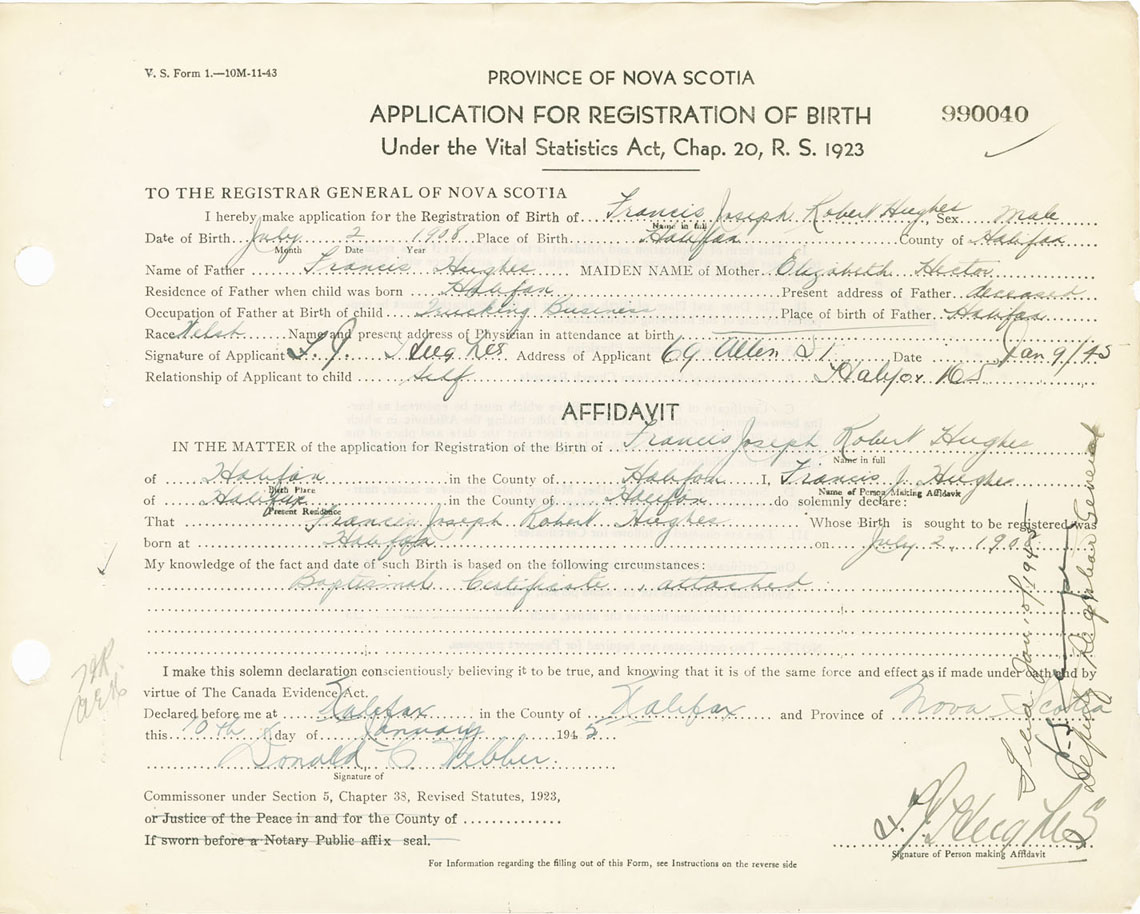 V. S. Form 1.—10M-11-43
PROVINCE OF NOVA SCOTIA
APPLICATION FOR REGISTRATION OF BIRTH
990040
Under the Vital Statistics Act, Chap. 20, R. S. 1923
TO THE REGISTRAR GENERAL OF NOVA SCOTIA
I hereby make application for the Registration of Birth of Francis Joseph Robert Hughes Sex Male
Name in full
Date of Birth July 2 1908 Place of Birth Halifax County of Halifax
Month Date Year
Name of Father Francis Hughes MAIDEN NAME of Mother Elizabeth Hector
Residence of Father when child was born Halifax Present address of Father deceased
Occupation of Father at Birth of child Trucking Business Place of birth of Father Halifax
Race Welsh Name and present address of Physician in attendance at birth
Signature of Applicant F. J. Hughes Address of Applicant 69 Allen St Date Jan 9/45
Relationship of Applicant to child Self Halifax N S
AFFIDAVIT
IN THE MATTER of the application for Registration of the Birth of Francis Joseph Robert Hughes
Name in full
of Halifax in the County of Halifax I, Francis J. Hughes
Birth Place Name of Person Making Affidavit
of Halifax in the County of Halifax do solemnly declare:
Present Residence
That Francis Joseph Robert Hughes Whose Birth is sought to be registered was
born at Halifax on July 2, 1908
My knowledge of the fact and date of such Birth is based on the following circumstances:
Baptismal Certificate attached
I make this solemn declaration conscientiously believing it to be true, and knowing that it is of the same force and effect as if made under oath and by
virtue of The Canada Evidence Act.
Declared before me at Halifax in the County of Halifax and Province of Nova Scotia
this 10th day of January 1945
Donald C. Webber
Signature of
Commissoner under Section 5, Chapter 38, Revised Statutes, 1923,
or Justice of the Peace in and for the County of
If sworn before a Notary Public affix seal.
F. J. Hughes
Signature of Person making Affidavit
For Information regarding the filling out of this Form, see Instructions on the reverse side
Filed Jan. 10/1945
Deputy Registrar General